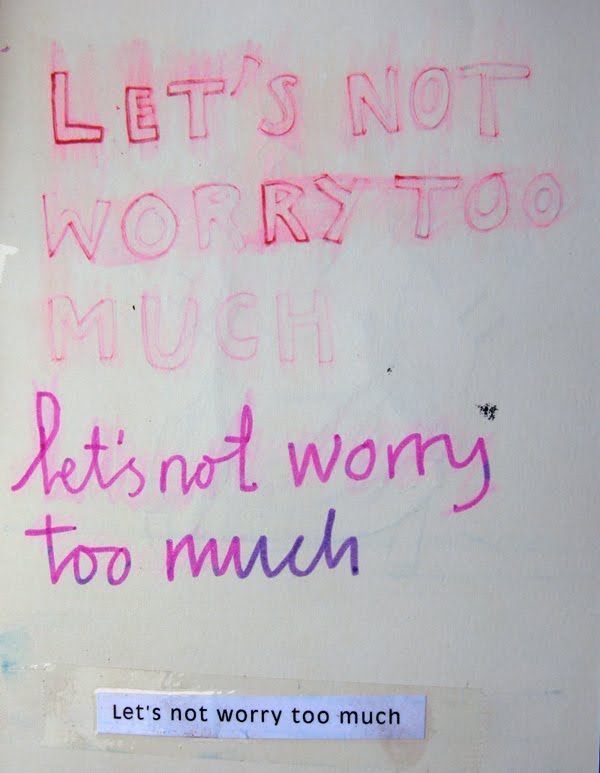 LET'S NOT
WORRY TOO
MUCH
let's not worry
too much
Let's not worry too much